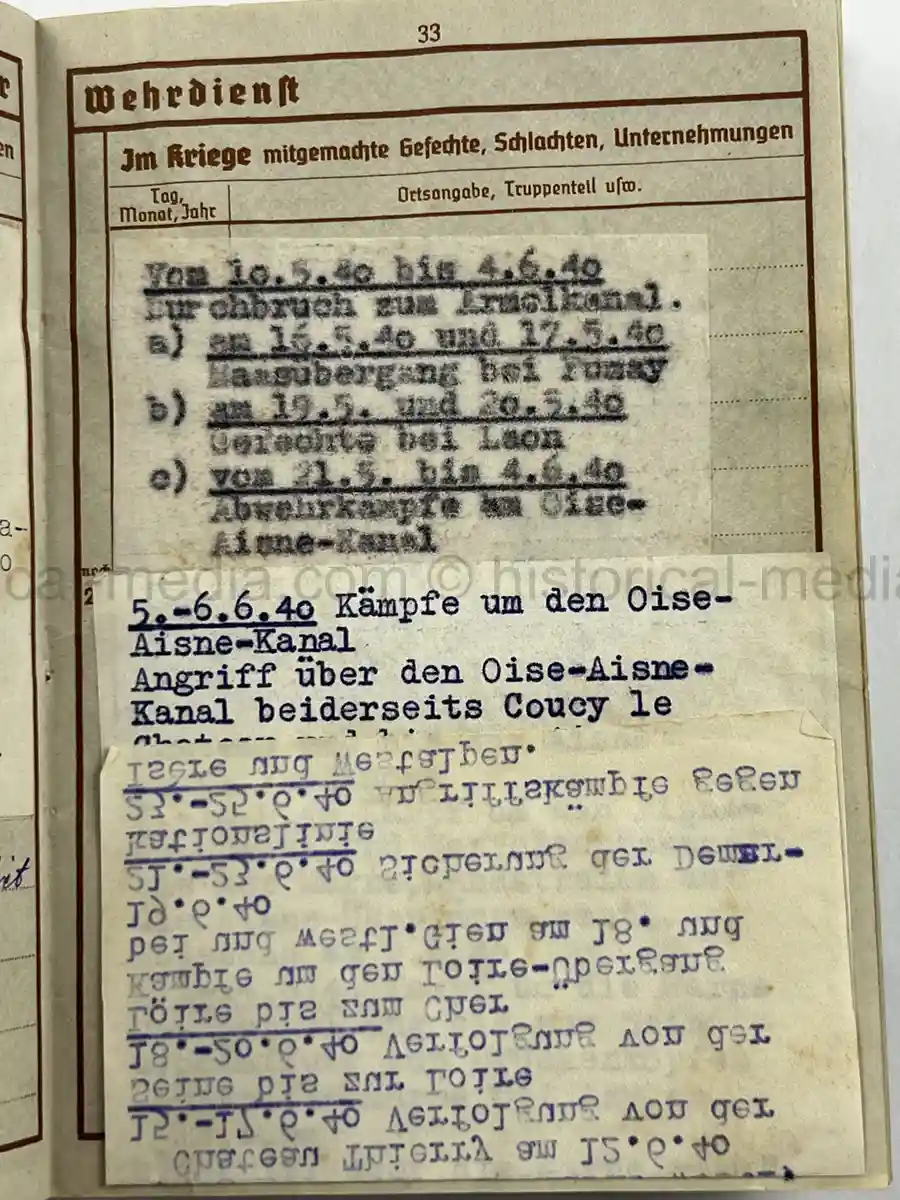 33
Wehrdienst
Im Kriege mitgemachte Gefechte, Schlachten, Unternehmungen
Tag, Monat, Jahr
Ortsangabe, Truppenteil usw.
Vom 10.5.40 bis 4.6.40
Durchbruch zum Ärmelkanal.
a) am 16.5.40 und 17.5.40
Maasübergang bei Fumay
b) am 19.5. und 20.5.40
Gefechte bei Laon
c) vom 21.5. bis 4.6.40
Abwehrkämpfe am Oise-
Aisne-Kanal
noch
5.-6.6.40 Kämpfe um den Oise-
Aisne-Kanal
Angriff über den Oise-Aisne-
Kanal beiderseits Coucy le
Chateau Thierry am 12.6.40
15.-17.6.40 Verfolgung von der
Seine bis zur Loire
18.-20.6.40 Verfolgung von der
Löire bis zum Cher
Kämpfe um den Loire-Übergang
bei und westl.Gien am 18. und
19.6.40
21.-23.6.40 Sicherung der Demar-
kationslinie
23.-25.6.40 Angriffskämpfe gegen
Isére und Westalpen.
car-media.com © historical-media